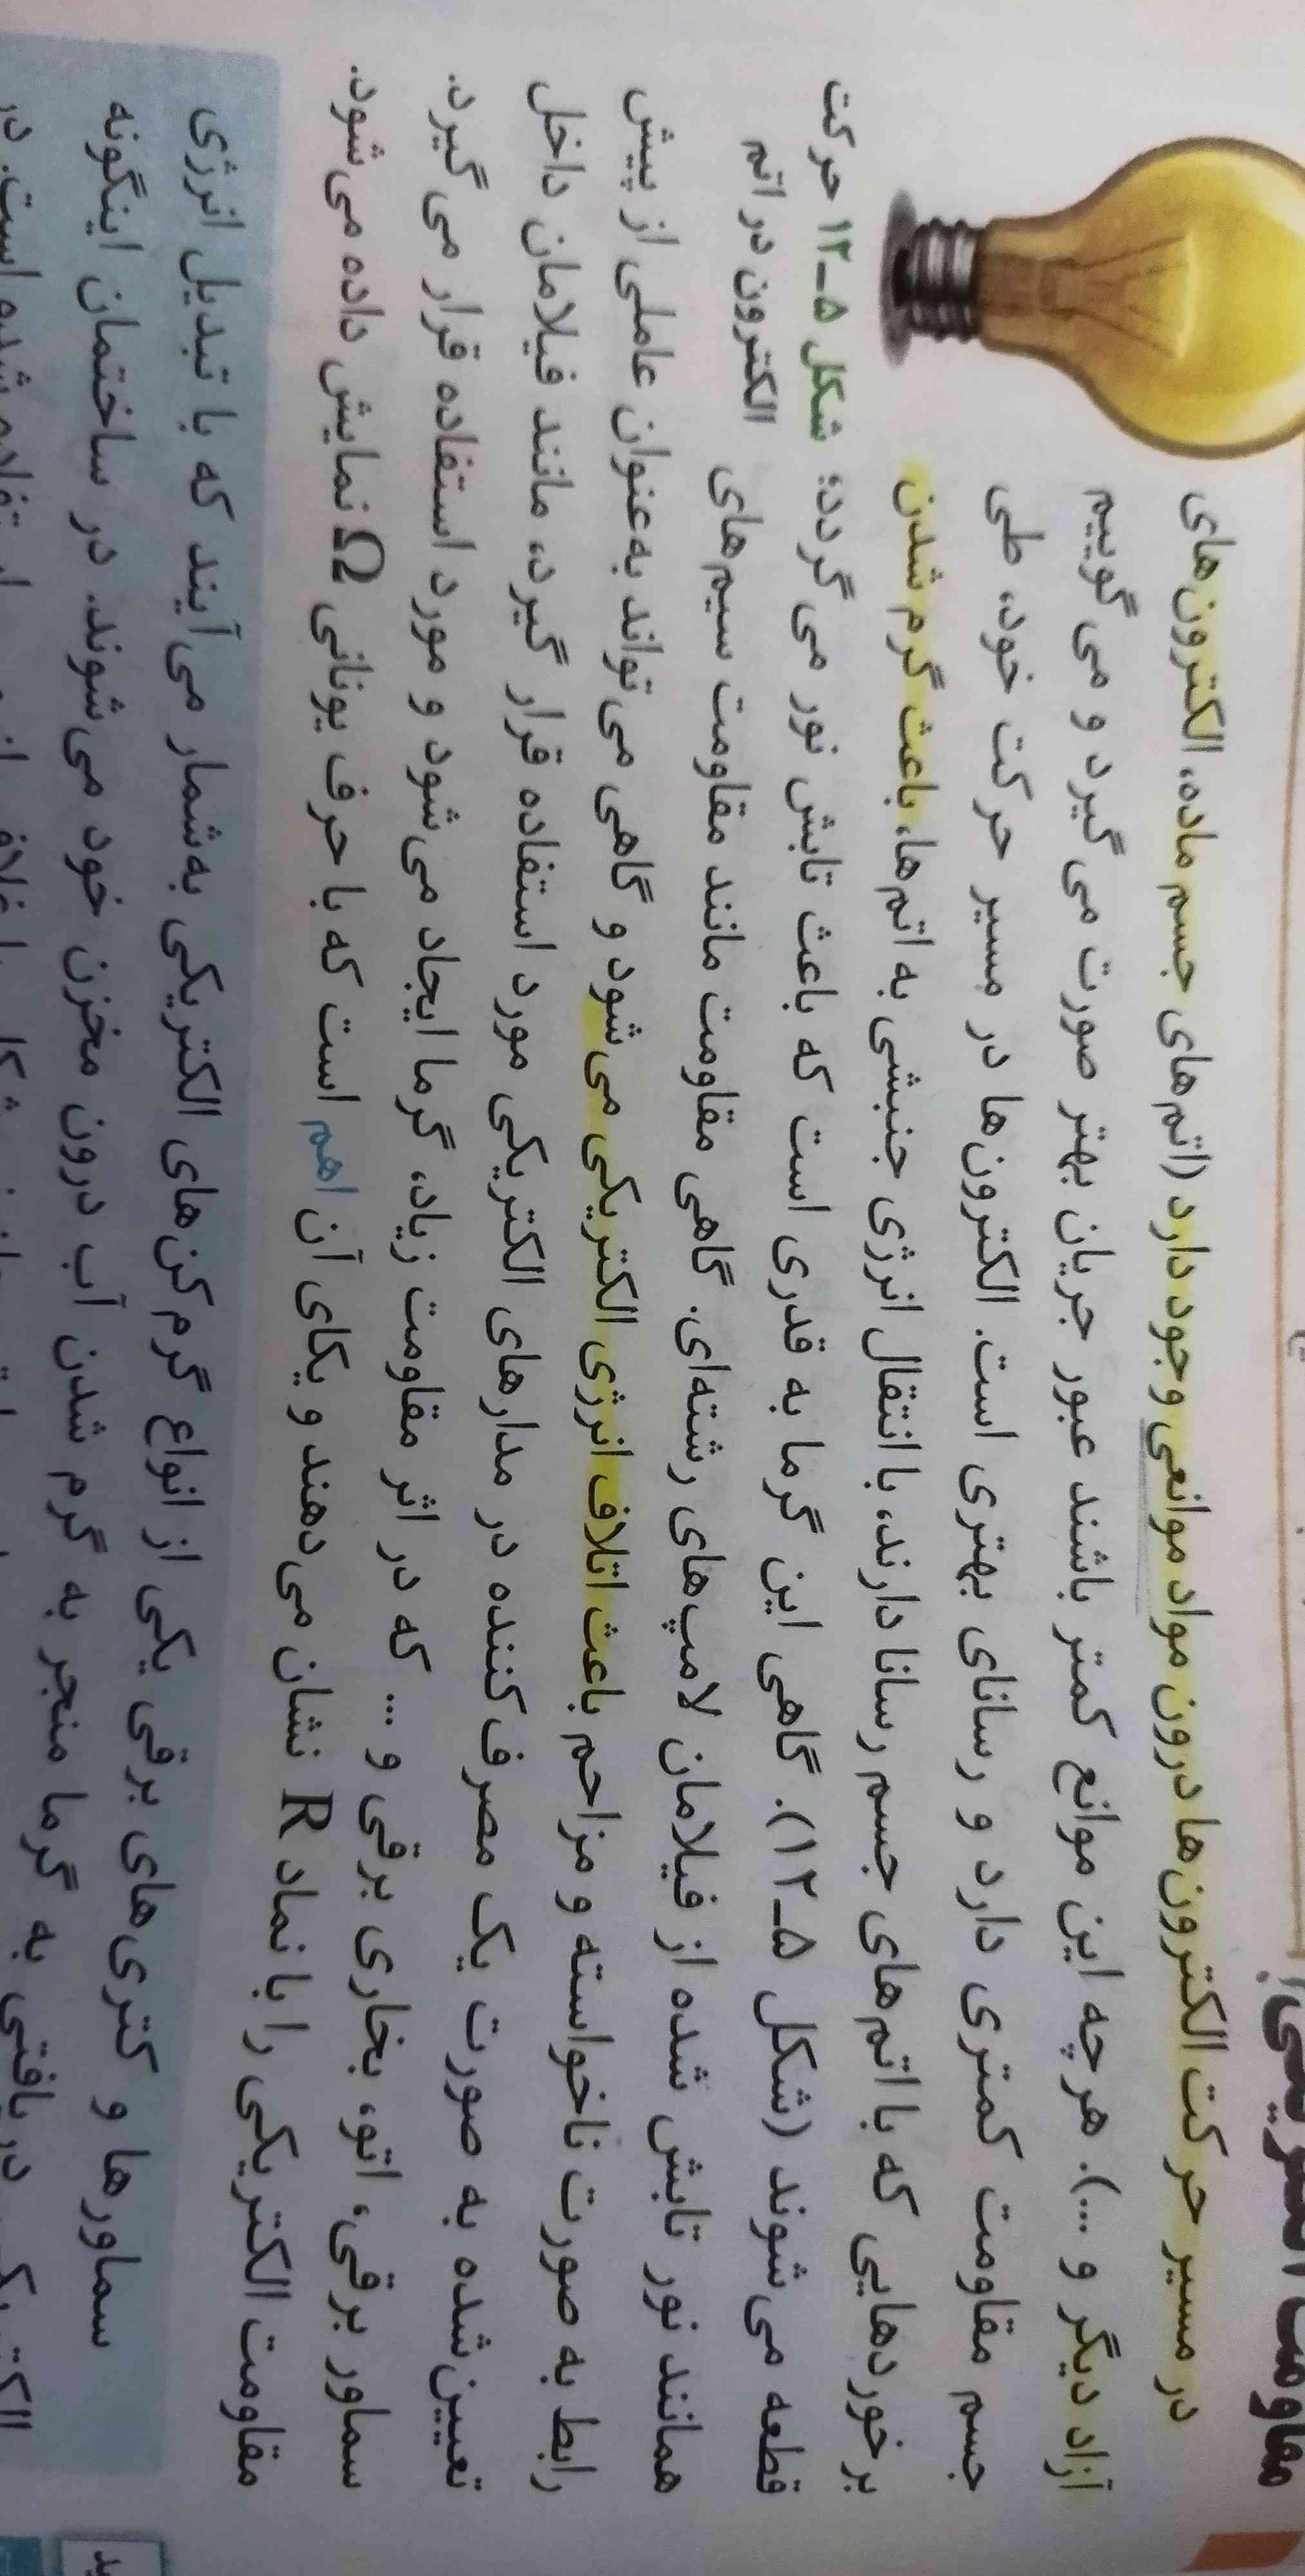 مقاومت الکتریکی
در مسیر حرکت الکترون‌ها درون مواد موانعی وجود دارد (اتم‌های جسم ماده، الکترون‌های
آزاد دیگر و ...). هرچه این موانع کمتر باشند عبور جریان بهتر صورت می‌گیرد و می‌گوییم
جسم مقاومت کمتری دارد و رسانای بهتری است. الکترون‌ها در مسیر حرکت خود، طی
برخوردهایی که با اتم‌های جسم رسانا دارند، با انتقال انرژی جنبشی به اتم‌ها، باعث گرم شدن
قطعه می‌شوند (شکل ۵-۱۲). گاهی این گرما به قدری است که باعث تابش نور می‌گردد؛
همانند نور تابش شده از فیلامان لامپ‌های رشته‌ای. گاهی مقاومت مانند مقاومت سیم‌های
رابط به صورت ناخواسته و مزاحم باعث اتلاف انرژی الکتریکی می‌شود و گاهی می‌تواند به‌عنوان عاملی از پیش
تعیین‌شده به صورت یک مصرف‌کننده در مدارهای الکتریکی مورد استفاده قرار گیرد، مانند فیلامان داخل
سماور برقی، اتو، بخاری برقی و ... که در اثر مقاومت زیاد، گرما ایجاد می‌شود و مورد استفاده قرار می‌گیرد.
مقاومت الکتریکی را با نماد R نشان می‌دهند و یکای آن اهم است که با حرف یونانی Ω نمایش داده می‌شود.
شکل ۵-۱۲ حرکت
الکترون در اتم
سماورها و کتری‌های برقی یکی از انواع گرم‌کن‌های الکتریکی به‌شمار می‌آیند که با تبدیل انرژی
الکتریکی دریافتی به گرما منجر به گرم شدن آب درون مخزن خود می‌شوند. در ساختمان اینگونه